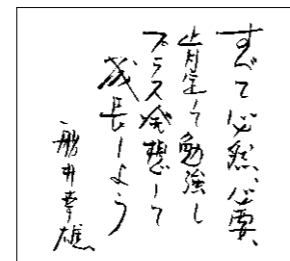 すべて必然、必要、
肯定して勉強し
プラス発想して
成長しよう
船井幸雄